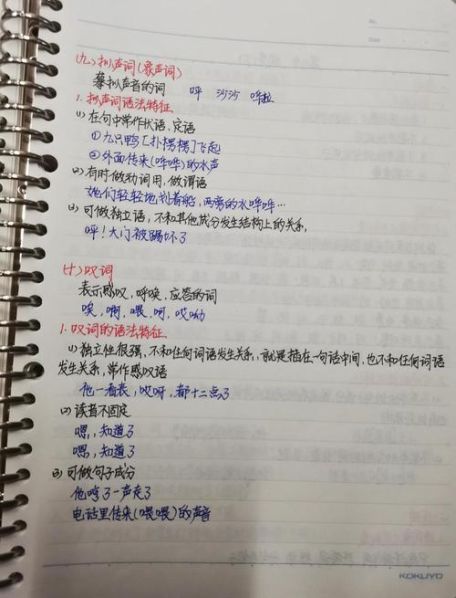 (九)拟声词(象声词)
摹拟声音的词 呯 沙沙 哗啦
1.拟声词语法特征
(1)在句中常作状语、定语
①九只鸭[扑楞楞]飞起
②外面传来(哗哗)的水声
(2)有时做动词用,做谓语
她们轻轻地划着船,两旁的水哗哗…
(3)可做独立语,不和其他成分发生结构上的关系,
呯!大门被踢坏了
(十)叹词
表示感叹,呼唤,应答的词
唉,啊,喂,呵,哎呦
1.叹词的语法特征
(1)独立性很强,不和任何词语发生关系,就是插在一句话中间,也不和任何词语
发生关系,常作感叹语
他一看表,哎呀,都十二点了
(2)读音不固定
嗯,知道了
嗯,知道了
(3)可做句子成分
他嗯了一声走了
电话里传来(喂喂)的声音